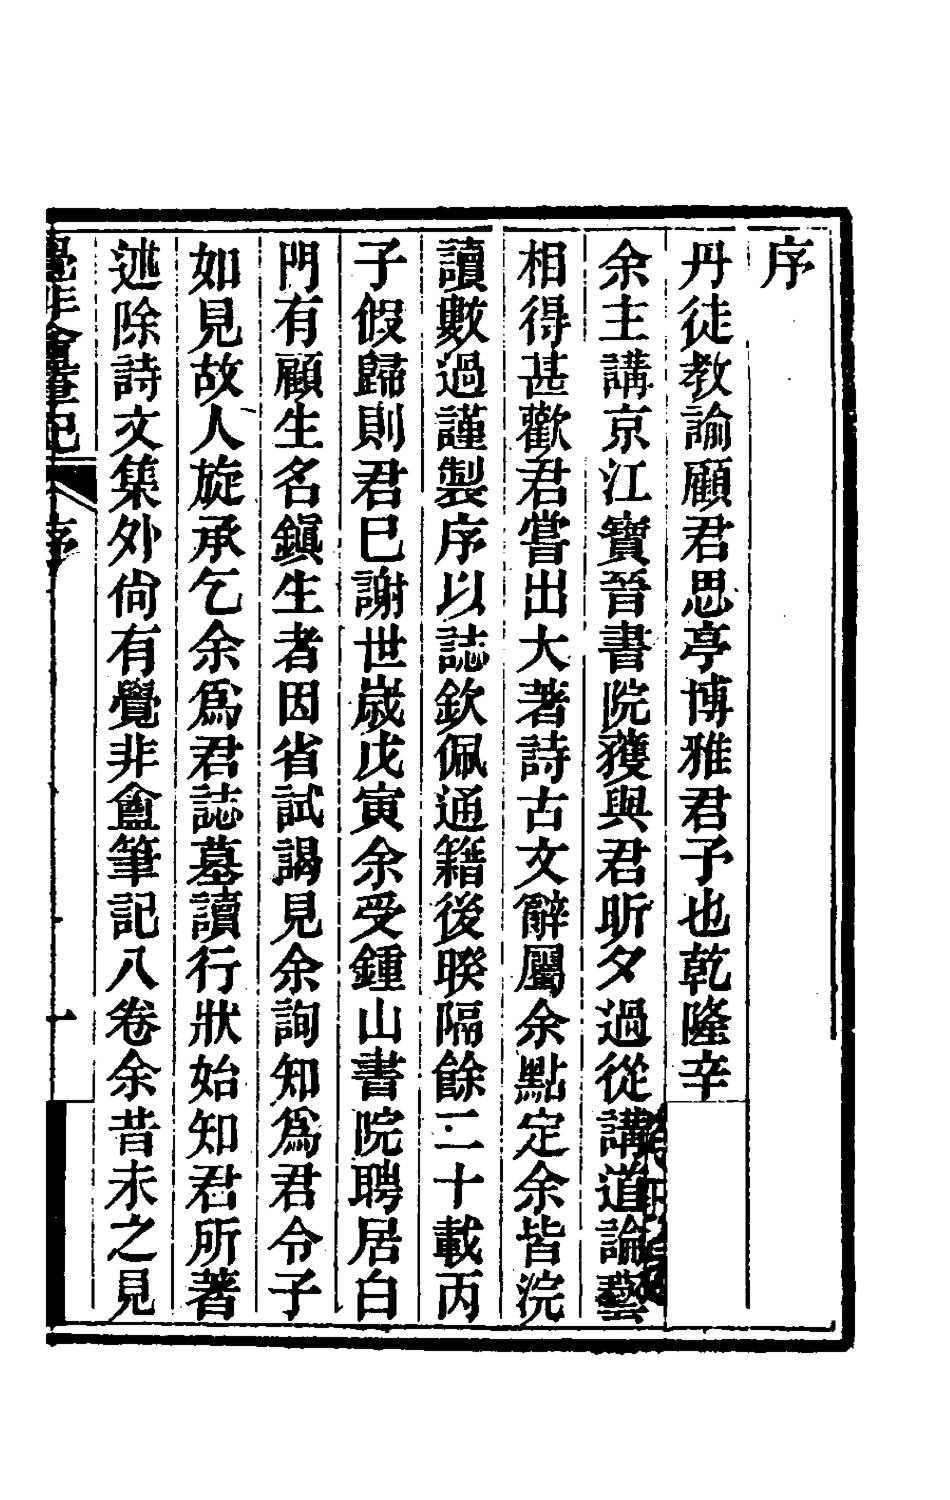 序
丹徒教諭顧君思亭博雅君子也乾隆辛
余主講京江寶晉書院獲與君昕夕過從講道論藝
相得甚歡君嘗出大著詩古文辭屬余點定余皆浣
讀數過謹製序以誌欽佩通籍後睽隔餘二十載丙
子假歸則君巳謝世歲戊寅余受鍾山書院聘居白
門有顧生名鎭生者因省試謁見余詢知爲君令子
如見故人旋承乞余爲君誌墓讀行狀始知君所著
述除詩文集外尙有覺非盦筆記八卷余昔未之見
覺非盦筆記
序
一